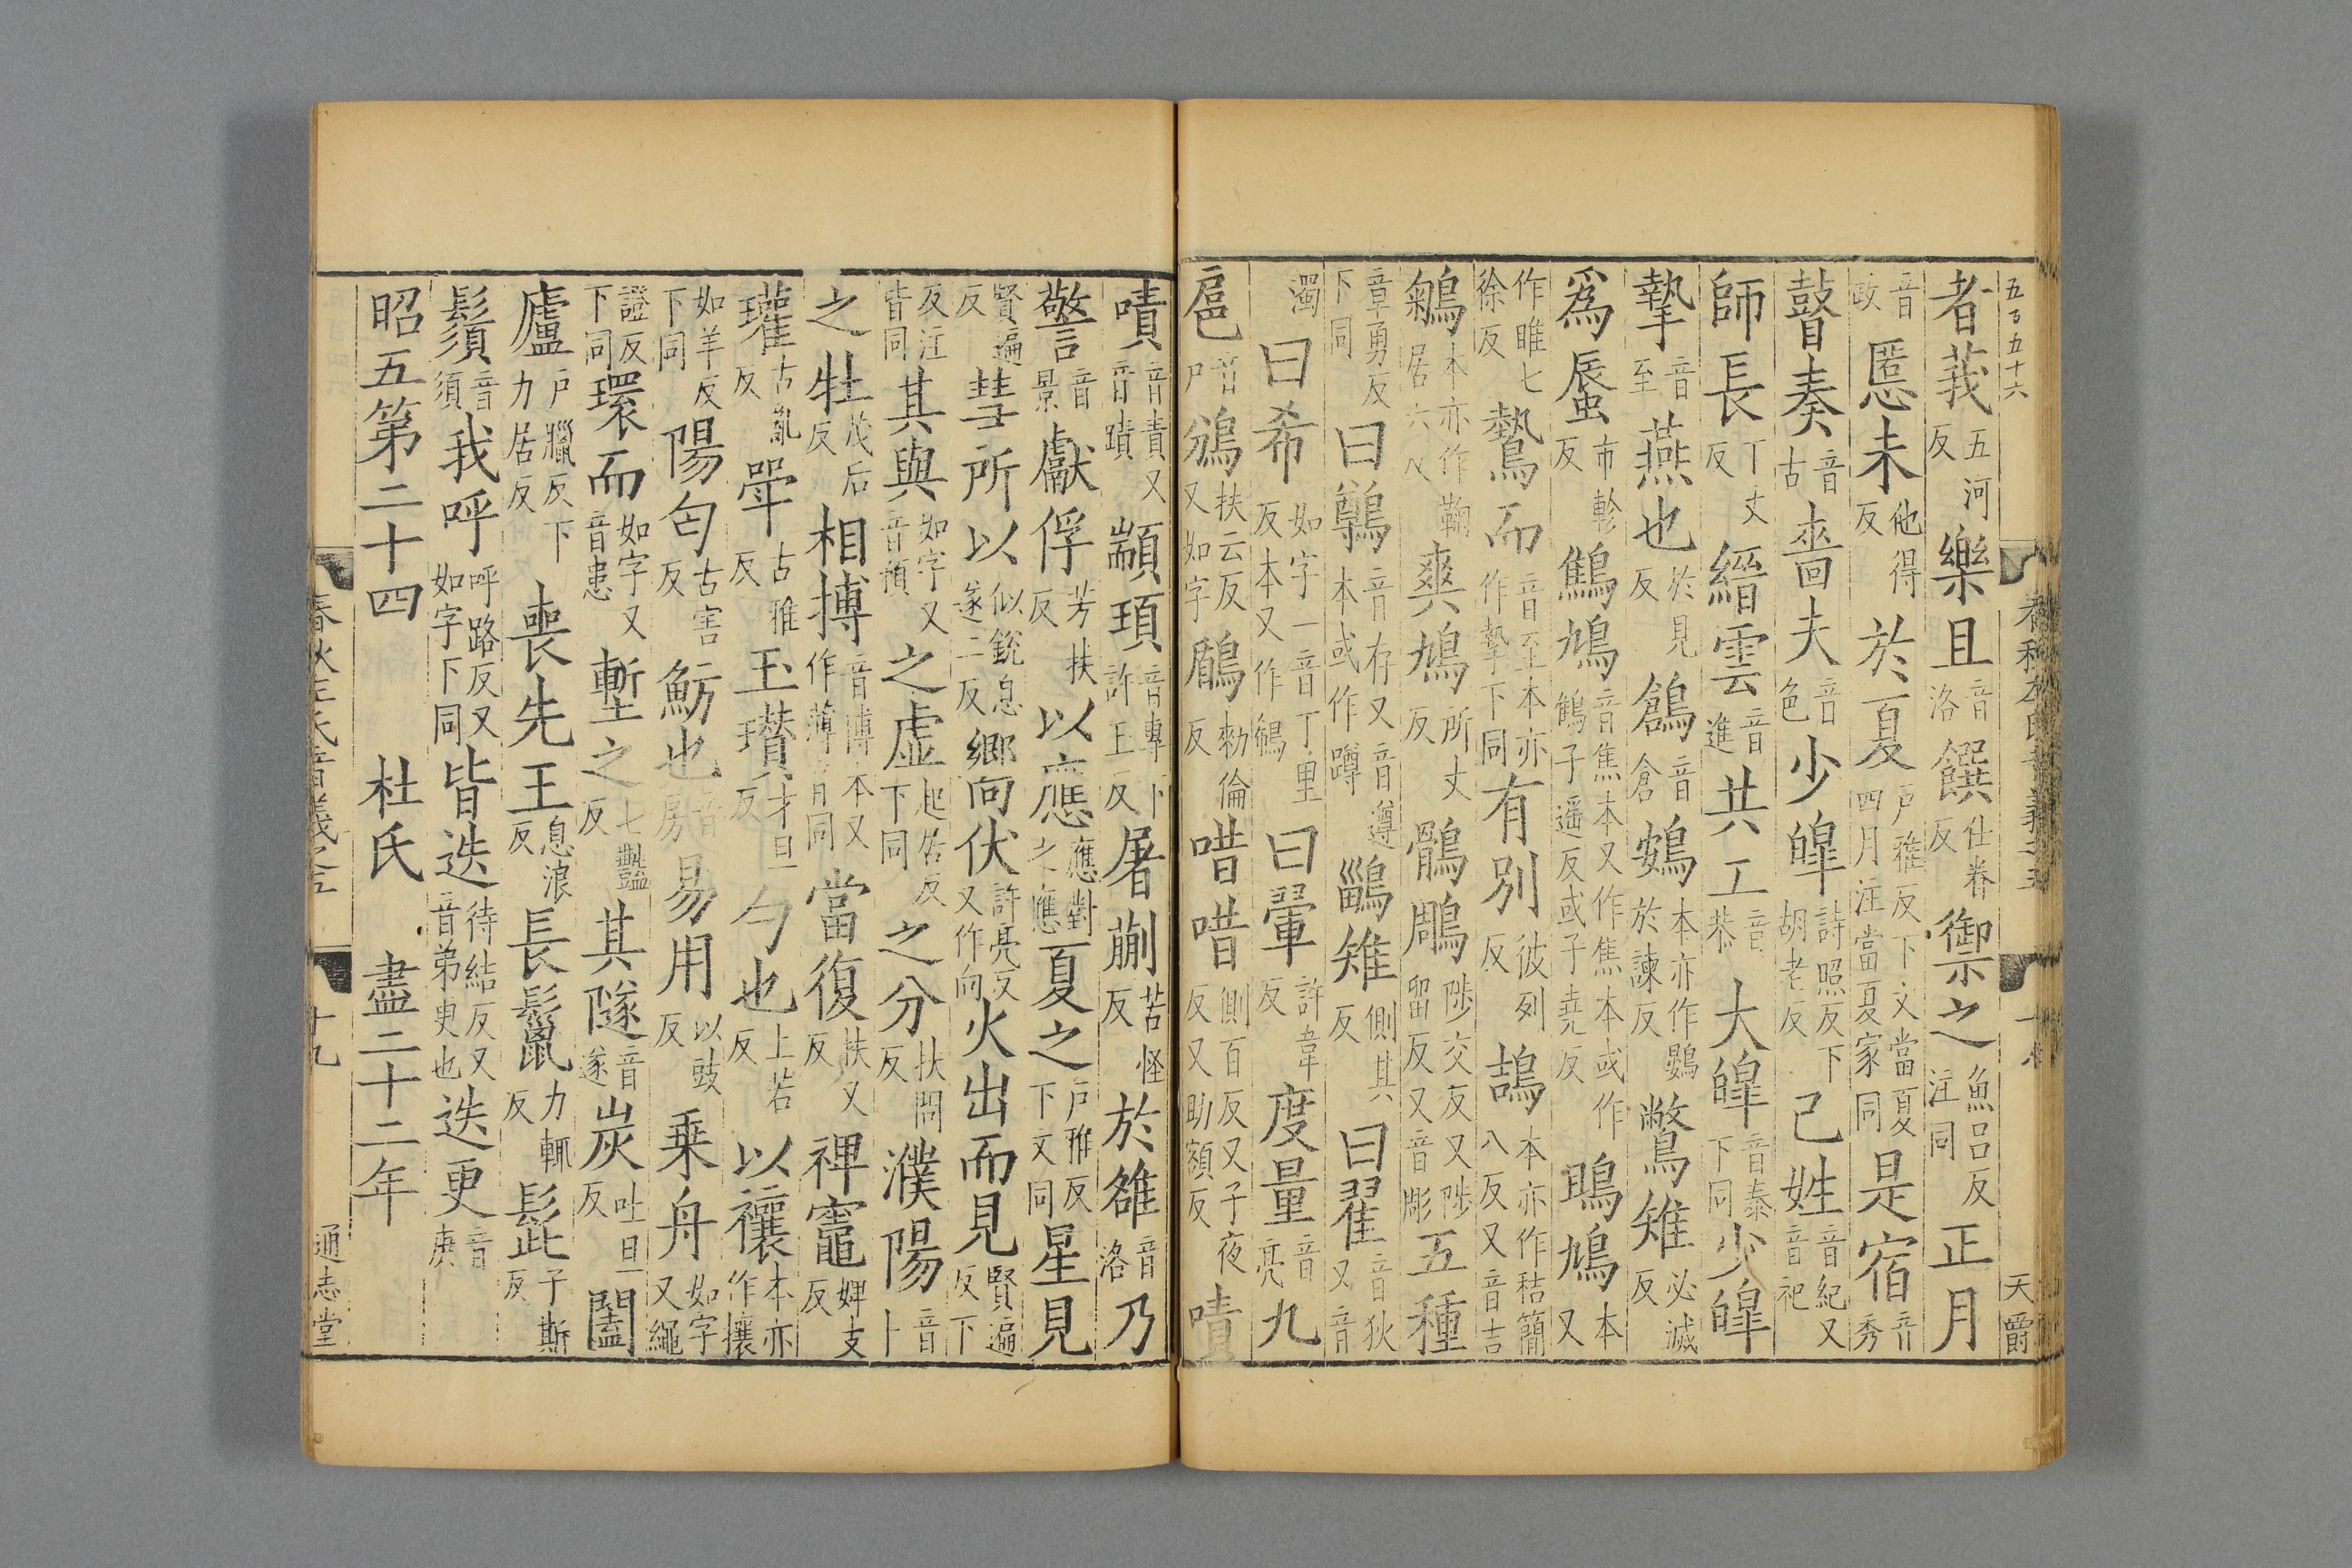 五百五十六 天爵
者莪五河反樂且音洛饌仕眷反御之魚呂反注同正月
音政慝未他得反於夏戶雅反下文當夏四月注當夏家同是宿音秀
瞽奏音古嗇夫音色少皥詩照反下胡老反己姓音紀又音祀
師長丁丈反縉雲音進共工音恭大皥音泰下同少皥
摯音至燕也於見反鶬音倉鴳本亦作鷃於諫反鷩雉必滅反
爲蜃市軫反鷦鳩音焦本又作焦本或作鶴子遥反或子堯反鴡鳩本又
作睢七徐反鷙而音至本亦作摯下同有別彼列反鴶本亦作秸簡八反又音吉
鵴本亦作鞠居六反爽鳩所丈反鶻鵰陟交反又陟留反又音彫五種
章勇反下同曰鷷音存又音遵本或作蹲鶅雉側其反曰翟音狄又音
濁曰希如字一音丁里反本又作鵗曰翬許韋反度量音亮九
扈音戶鳻扶云反又如字鳸勑倫反唶唶側百反又子夜反又助額反嘖
嘖音責又音蹟顓頊音專下許玉反屠蒯苦怪反於雒音洛乃
警音景獻俘芳扶反以應應對之應夏之戶雅反下文同星見
賢遍反彗所以似銳息遂二反鄉向伏許亮反又作向火出而見賢遍反下
反注皆同其與如字又音預之虛起居反下同之分扶問反濮陽音卜
之牡茂后反相摶音博本又作薄音同當復扶又反裨竈婢支反
瓘古亂反斝古雅反玉瓚才旦反勺也上若反以禳本亦作攘
如羊反下同陽匄古害反魴也音房易用以豉反乗舟如字又繩
證反下同環而如字又音患塹之七豔反其隧音遂炭吐旦反闔
廬戶臘反下力居反喪先王息浪反長鬛力輒反髭子斯反
鬚音須我呼呼路反又如字下同皆迭待結反又音弟更也迭更音庚
昭五第二十四 杜氏 盡二十二年
春秋左氏音義之五 十九 通志堂